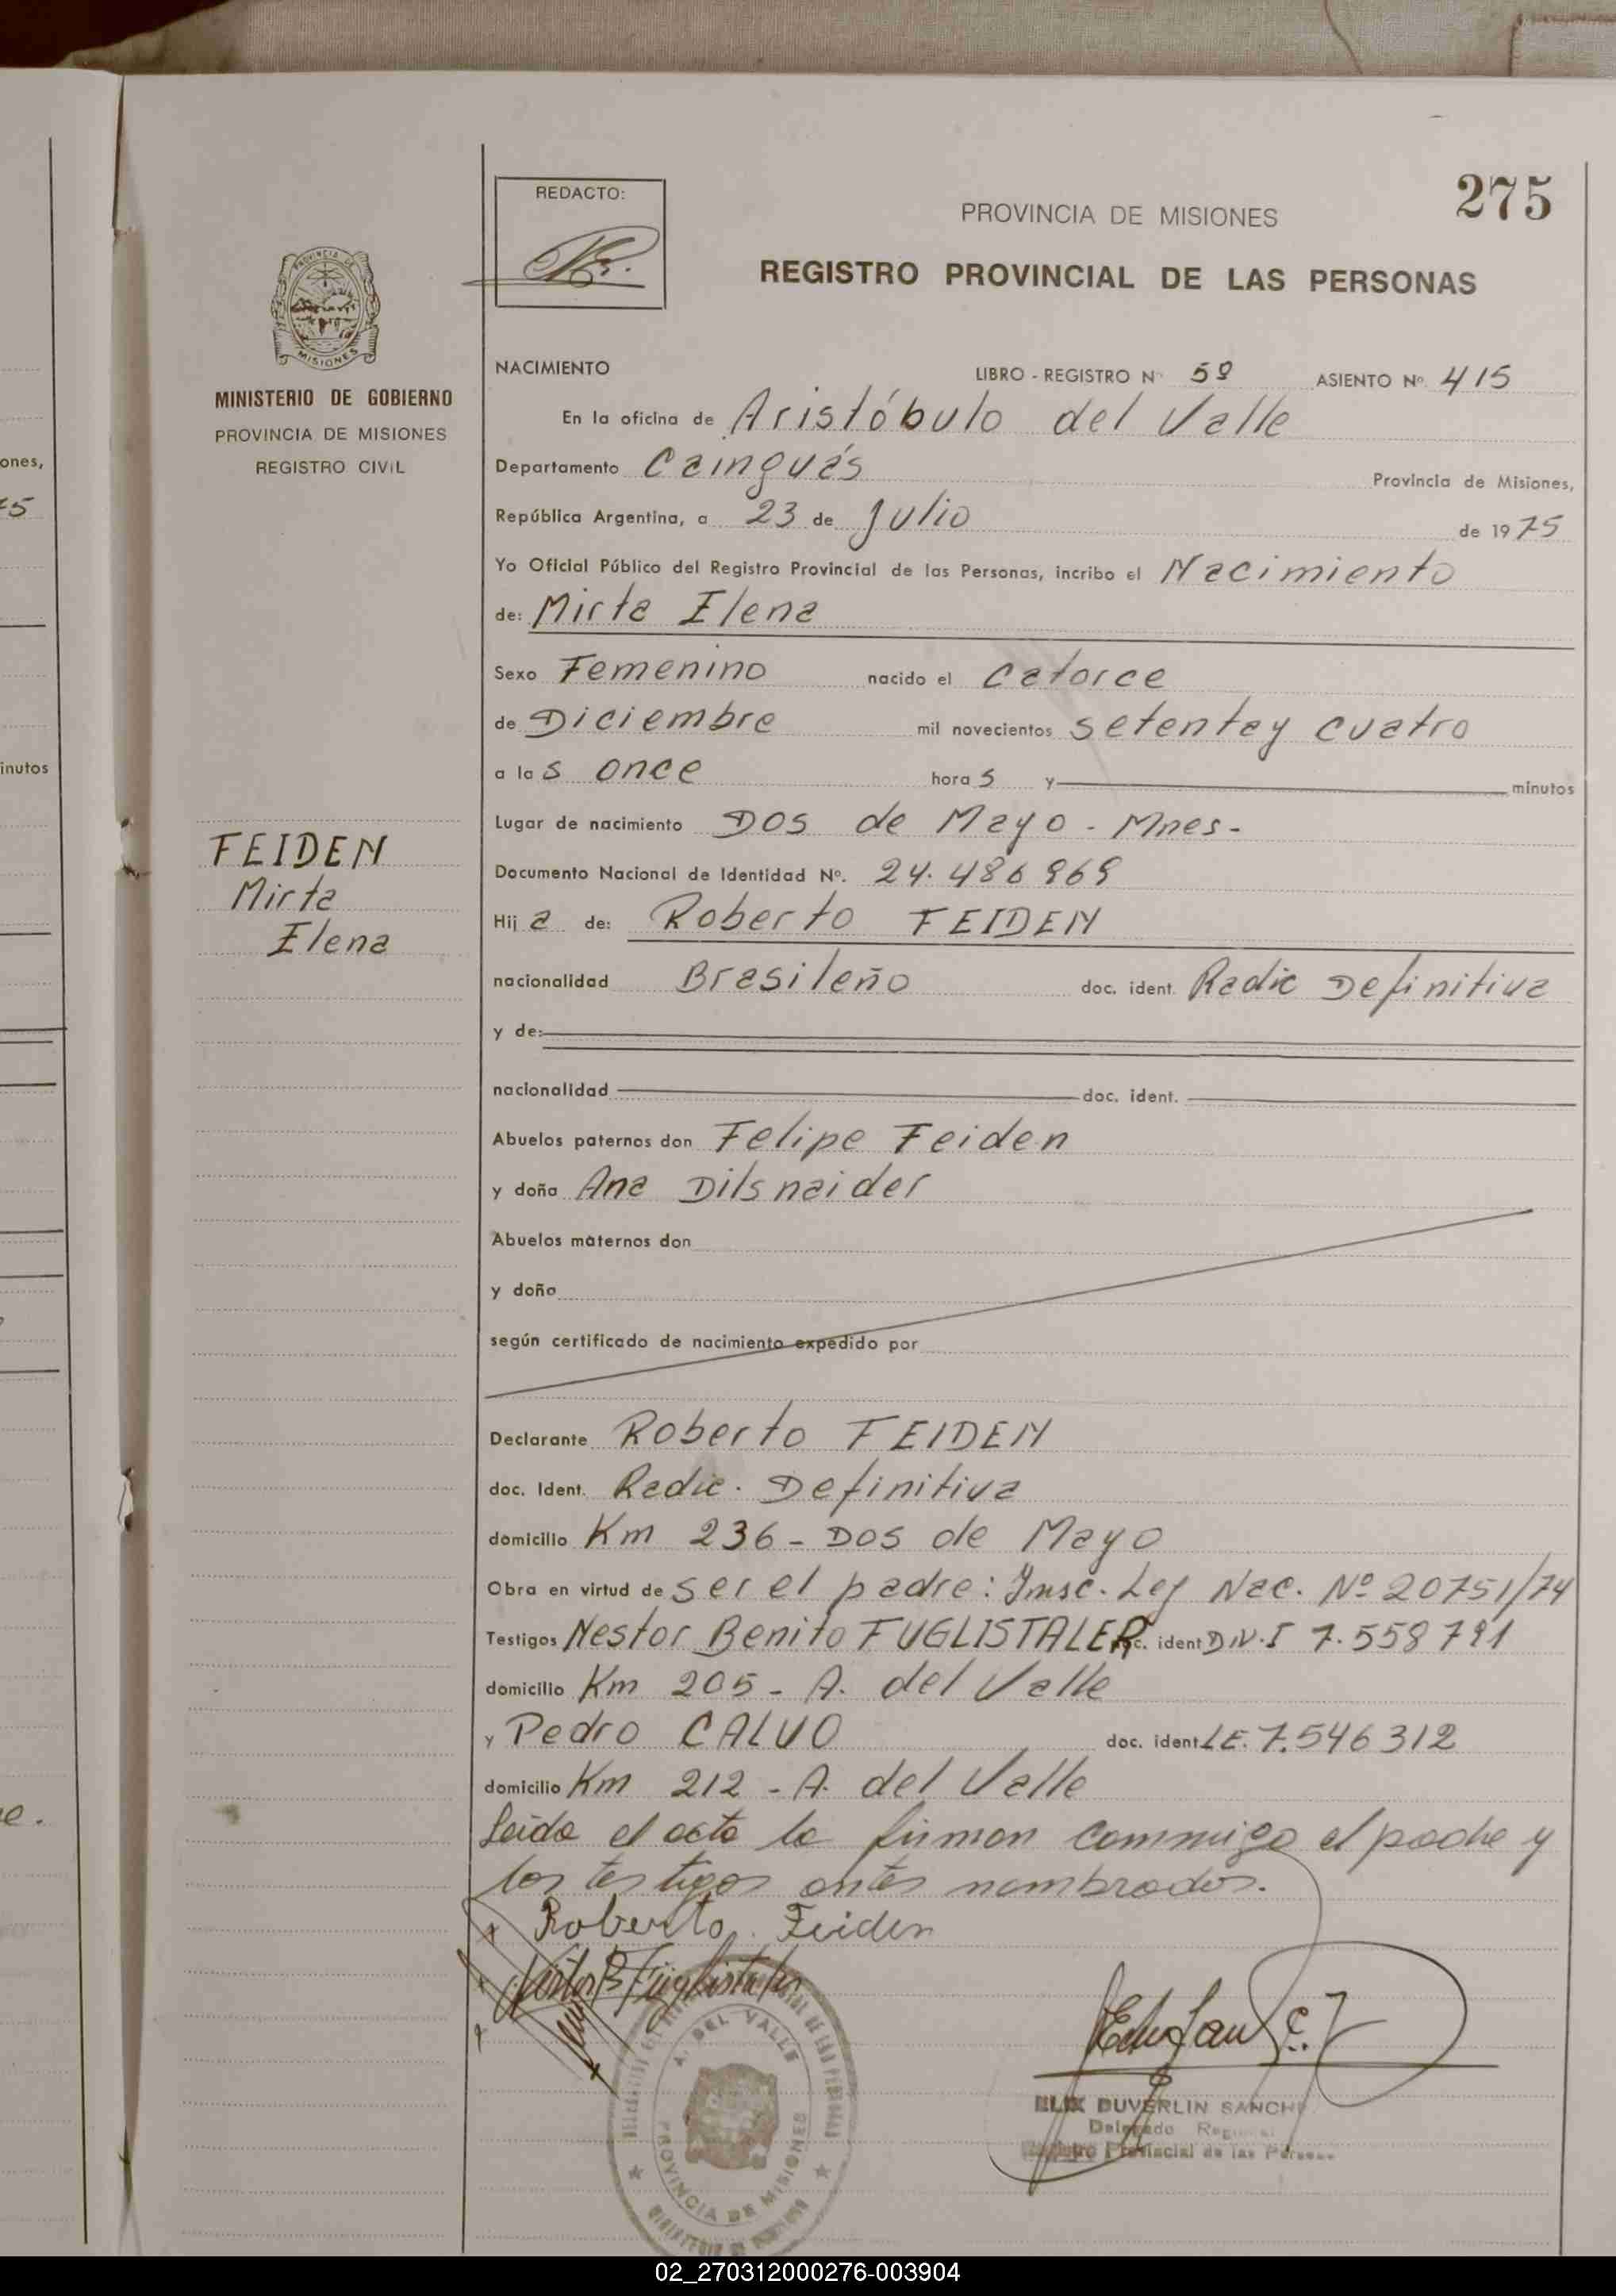 275
REDACTO:
PROVINCIA DE MISIONES
REGISTRO PROVINCIAL DE LAS PERSONAS
PROVINCIA DE
MISIONES
MINISTERIO DE GOBIERNO
PROVINCIA DE MISIONES
REGISTRO CIVIL
NACIMIENTO LIBRO - REGISTRO Nº 5º ASIENTO Nº. 415
En la oficina de Aristóbulo del Valle
Departamento Cainguás Provincia de Misiones,
República Argentina, a 23 de Julio de 1975
Yo Oficial Público del Registro Provincial de las Personas, incribo el Nacimiento
de: Mirta Elena
Sexo Femenino nacido el catorce
de Diciembre mil novecientos setentay cuatro
a las once horas y minutos
Lugar de nacimiento Dos de Mayo - Mnes-
FEIDEN
Mirta
Elena
Documento Nacional de Identidad Nº. 24.486969
Hija de: Roberto FEIDEN
nacionalidad Brasileño doc. ident. Radic Definitiva
y de:
nacionalidad doc. ident.
Abuelos paternos don Felipe Feiden
y doña Ana Dilsnaider
Abuelos maternos don
y doña
según certificado de nacimiento expedido por
Declarante Roberto FEIDEN
doc. Ident. Radic. Definitiva
domicilio Km 236 - Dos de Mayo
Obra en virtud de ser el padre: Insc. Ley Nac. Nº 20751/74
Testigos Nestor Benito FUGLISTALER doc. ident D.N.I 7.558791
domicilio Km 205 - A. del Valle
y Pedro CALVO doc. ident LE. 7.546312
domicilio Km 212 - A. del Valle
Leida el acta la firman conmigo el padre y
los testigos antes nombrados.
Roberto Feiden
Néstor B Füglistaler
A. DEL VALLE
PROVINCIA DE MISIONES
ELIX DUVERLIN SANCHE
Delegado Regional
Registro Provincial de las Personas
ones,
75
inutos
e.
02_270312000276-003904